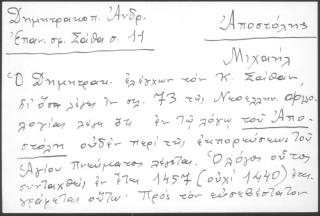 Δημητρακοπ. Ἀνδρ.
Ἐπαν. σφ. Σάθα σ. 11
Ἀποστόλης
Μιχαήλ
Ὁ Δημητρακ. ἐλέγχων τὸν Κ. Σάθαν
δι' ὅσα λέγει ἐν σελ. 73 τῆς Νεοελλην. φιλο
λογίας λέγει ὅτι ἐν τῷ λόγῳ τοῦ Ἀπο-
στόλη οὐδὲν περὶ τῆς ἐκπορεύσεως τοῦ
Ἁγίου Πνεύματος λέγεται. Ὁ λόγος οὗτος
συνταχθεὶς ἐν ἔτει 1457 (οὐχὶ 1440) ἐπι-
γράφεται οὕτω. Πρὸς τὸν εὐσεβέστατον